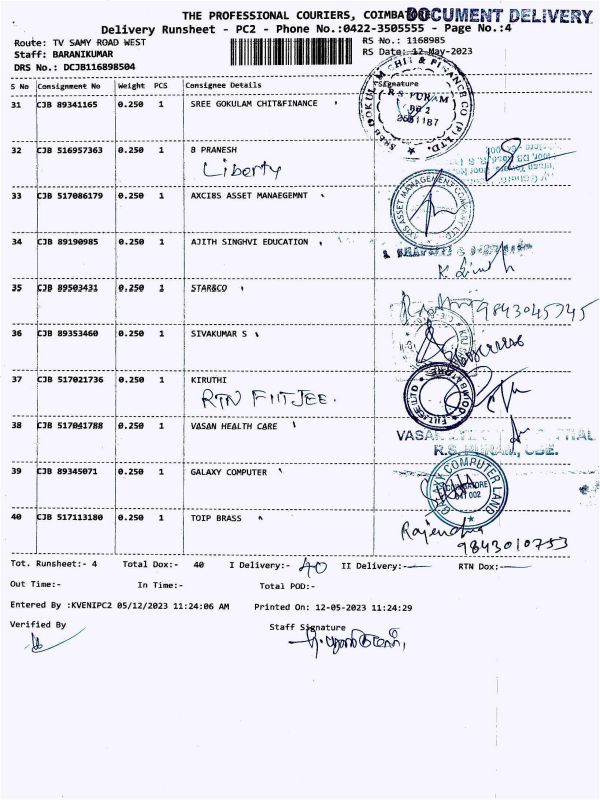 THE PROFESSIONAL COURIERS, COIMBATORE
DOCUMENT DELIVERY
Delivery Runsheet - PC2 - Phone No.:0422-3505555 - Page No.:4
Route: TV SAMY ROAD WEST
RS No.: 1168985
Staff: BARANIKUMAR
RS Date: 12-May-2023
DRS No.: DCJB116898504
S No Consignment No Weight PCS Consignee Details Signature
31 CJB 89341165 0.250 1 SREE GOKULAM CHIT&FINANCE
SREE GOKULAM CHIT & FINANCE CO (P) LTD.
R S PURAM
2551187
32 CJB 516957363 0.250 1 B PRANESH
Liberty
33 CJB 517086179 0.250 1 AXCIBS ASSET MANAEGEMNT
AXIS ASSET MANAGEMENT COMPANY LTD.
34 CJB 89190985 0.250 1 AJITH SINGHVI EDUCATION
35 CJB 89503431 0.250 1 STAR&CO
9843045745
36 CJB 89353460 0.250 1 SIVAKUMAR S
37 CJB 517021736 0.250 1 KIRUTHI
RTN FIITJEE.
FIITJEE LTD
COIMBATORE
38 CJB 517041788 0.250 1 VASAN HEALTH CARE
R.S. PURAM, CBE.
39 CJB 89345071 0.250 1 GALAXY COMPUTER
GALAXY COMPUTER LAND
COIMBATORE
641 002
40 CJB 517113180 0.250 1 TOIP BRASS
Rajendra
9843010753
Tot. Runsheet:- 4 Total Dox:- 40 I Delivery:- 40 II Delivery:- RTN Dox:-
Out Time:- In Time:- Total POD:-
Entered By :KVENIPC2 05/12/2023 11:24:06 AM Printed On: 12-05-2023 11:24:29
Verified By Staff Signature